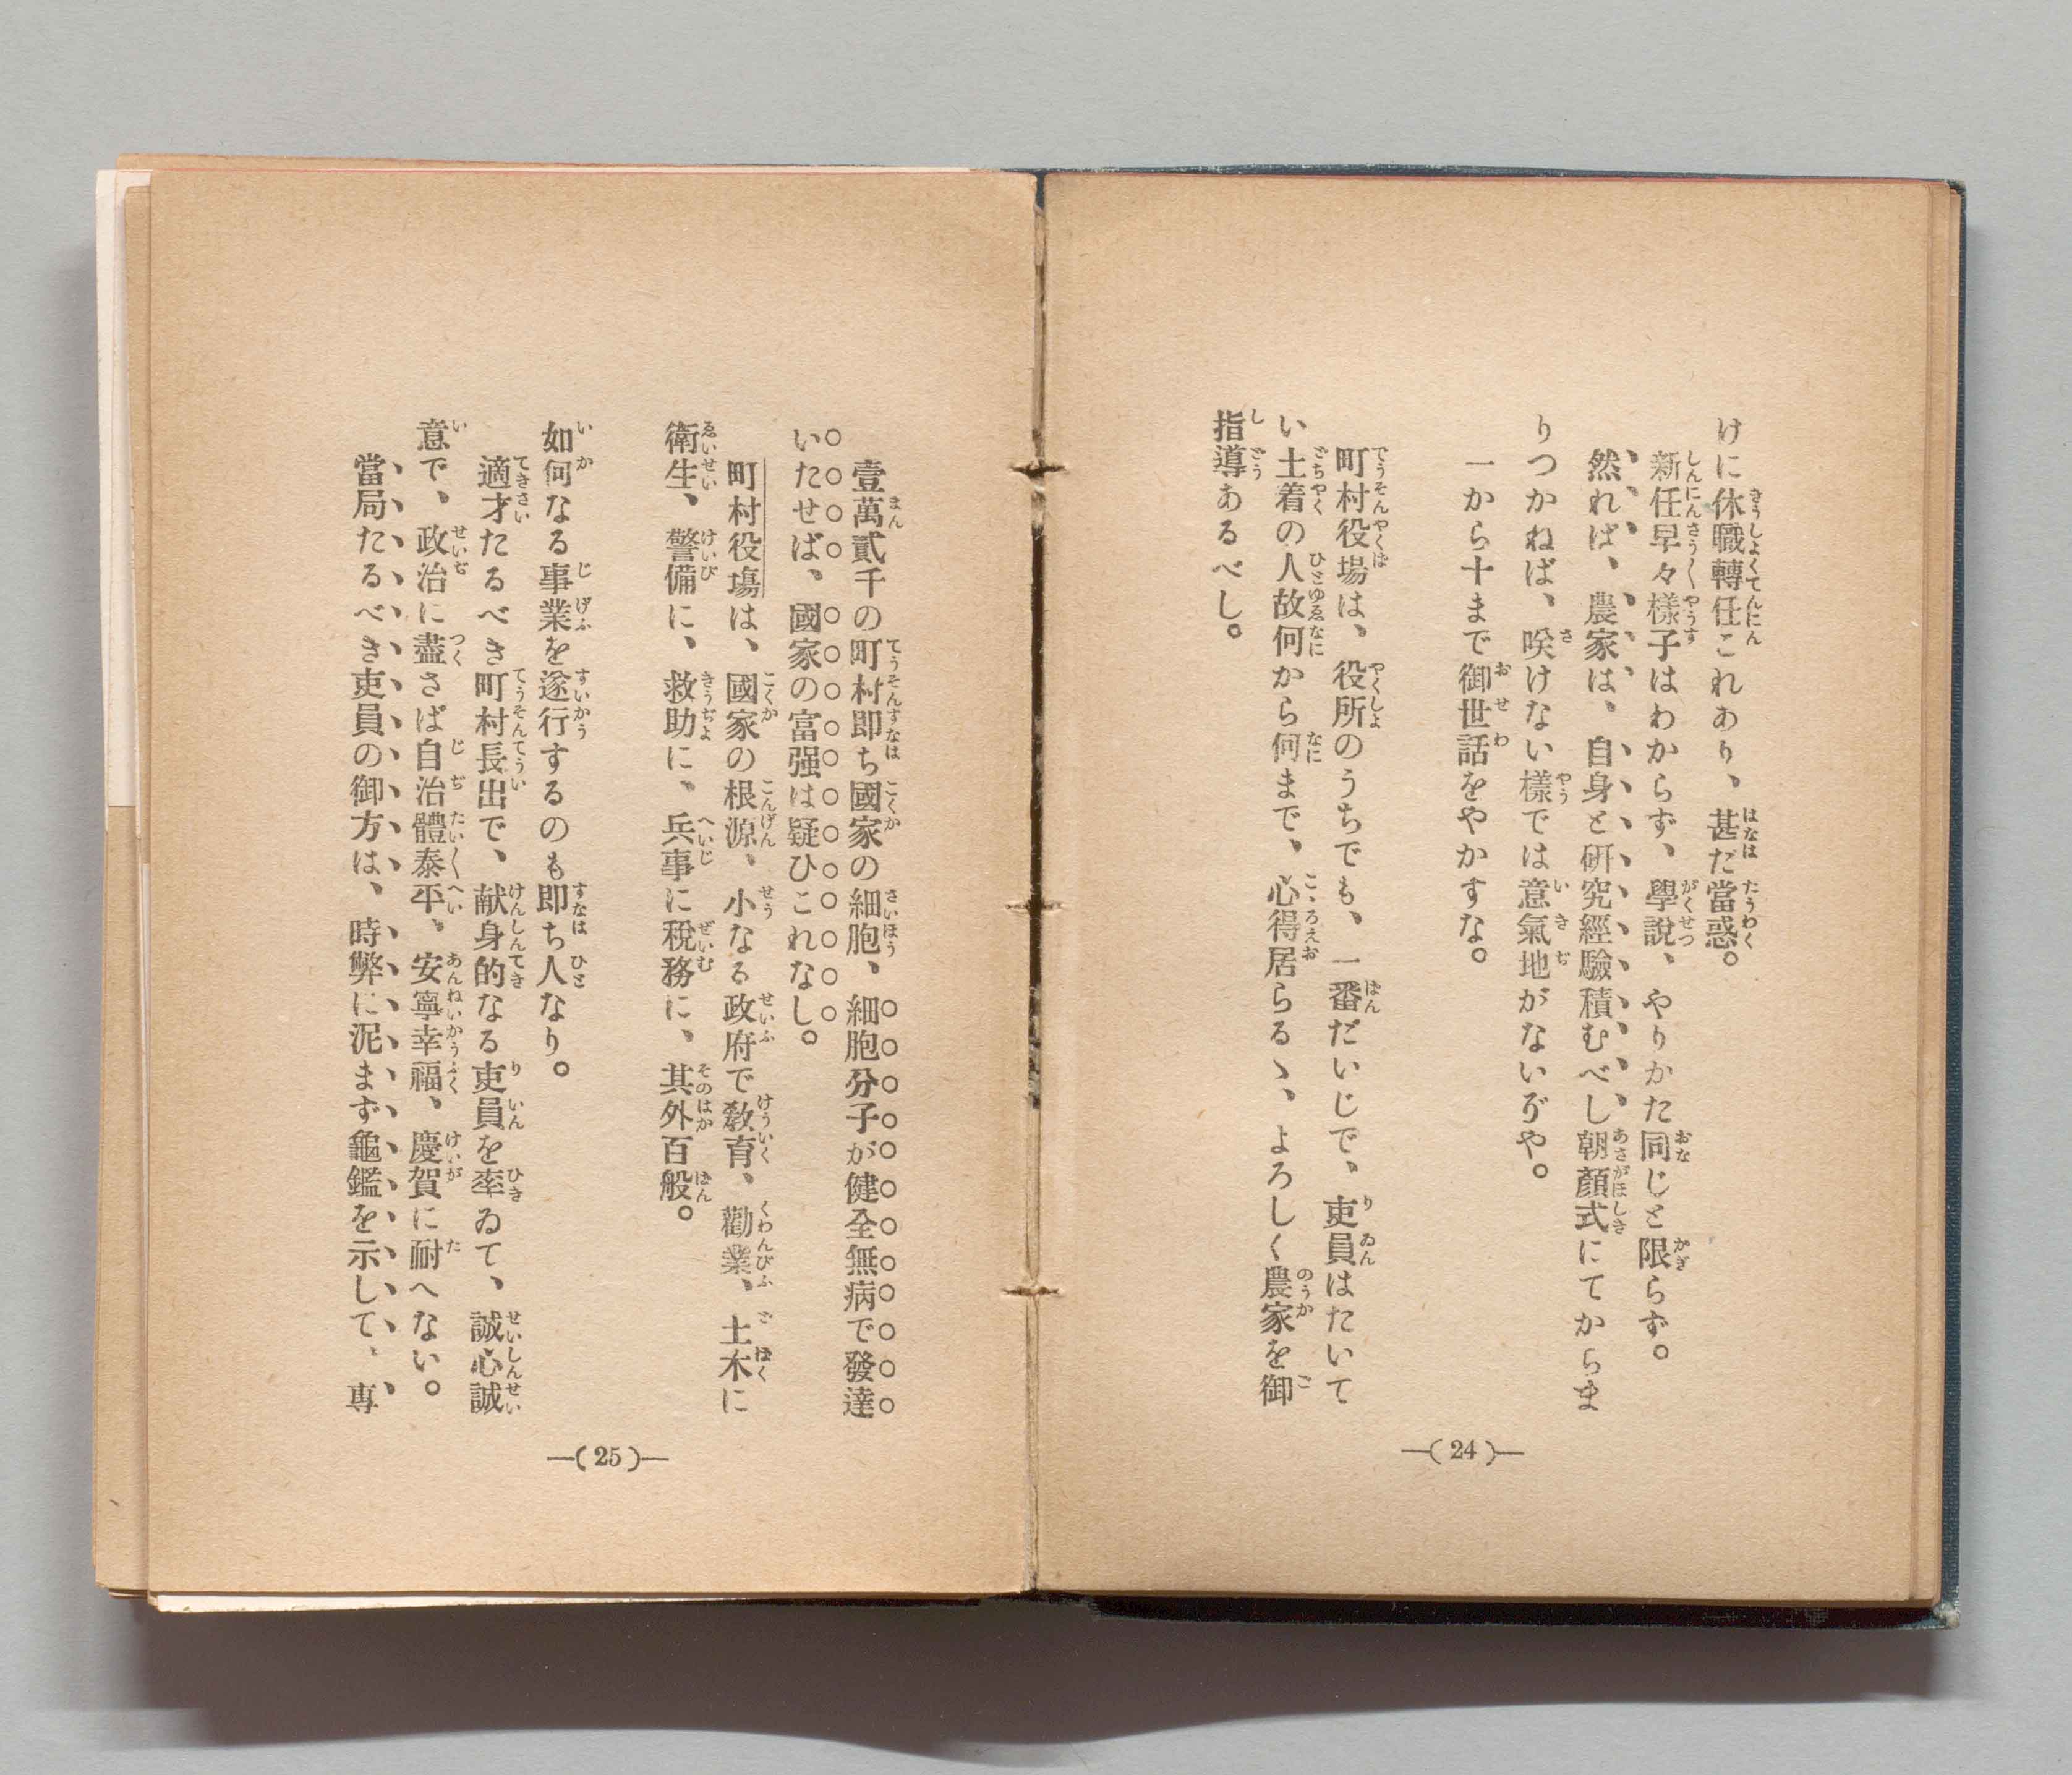 けに休職轉任これあり、甚だ當惑。
新任早々樣子はわからず、學說、やりかた同じと限らず。
然れば、農家は、自身と研究經驗積むべし朝顏式にてからま
りつかねば、咲けない樣では意氣地がないぢや。
一から十まで御世話をやかすな。
町村役場は、役所のうちでも、一番だいじで、吏員はたいて
い土着の人故何から何まで、心得居らるゝ、よろしく農家を御
指導あるべし。
—( 24 )—
壹萬貳千の町村即ち國家の細胞、細胞分子が健全無病で發達
いたせば、國家の富强は疑ひこれなし。
町村役塲は、國家の根源、小なる政府で敎育、勸業、土木に
衛生、警備に、救助に、兵事に稅務に、其外百般。
如何なる事業を遂行するのも即ち人なり。
適才たるべき町村長出で、献身的なる吏員を率ゐて、誠心誠
意で、政治に盡さば自治體泰平、安寧幸福、慶賀に耐へない。
當局たるべき吏員の御方は、時弊に泥まず龜鑑を示して、專
—( 25 )—